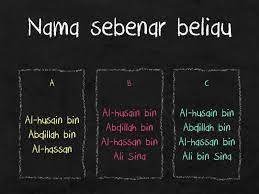 Nama sebenar beliau
A
Al-husain bin
Abdillah bin
Al-hassan
B
Al-husain bin
Abdillah bin
Al-hassan bin
Ali Sina
C
Al-husain bin
Abdillah bin
Al-hassan bin
Ali bin Sina